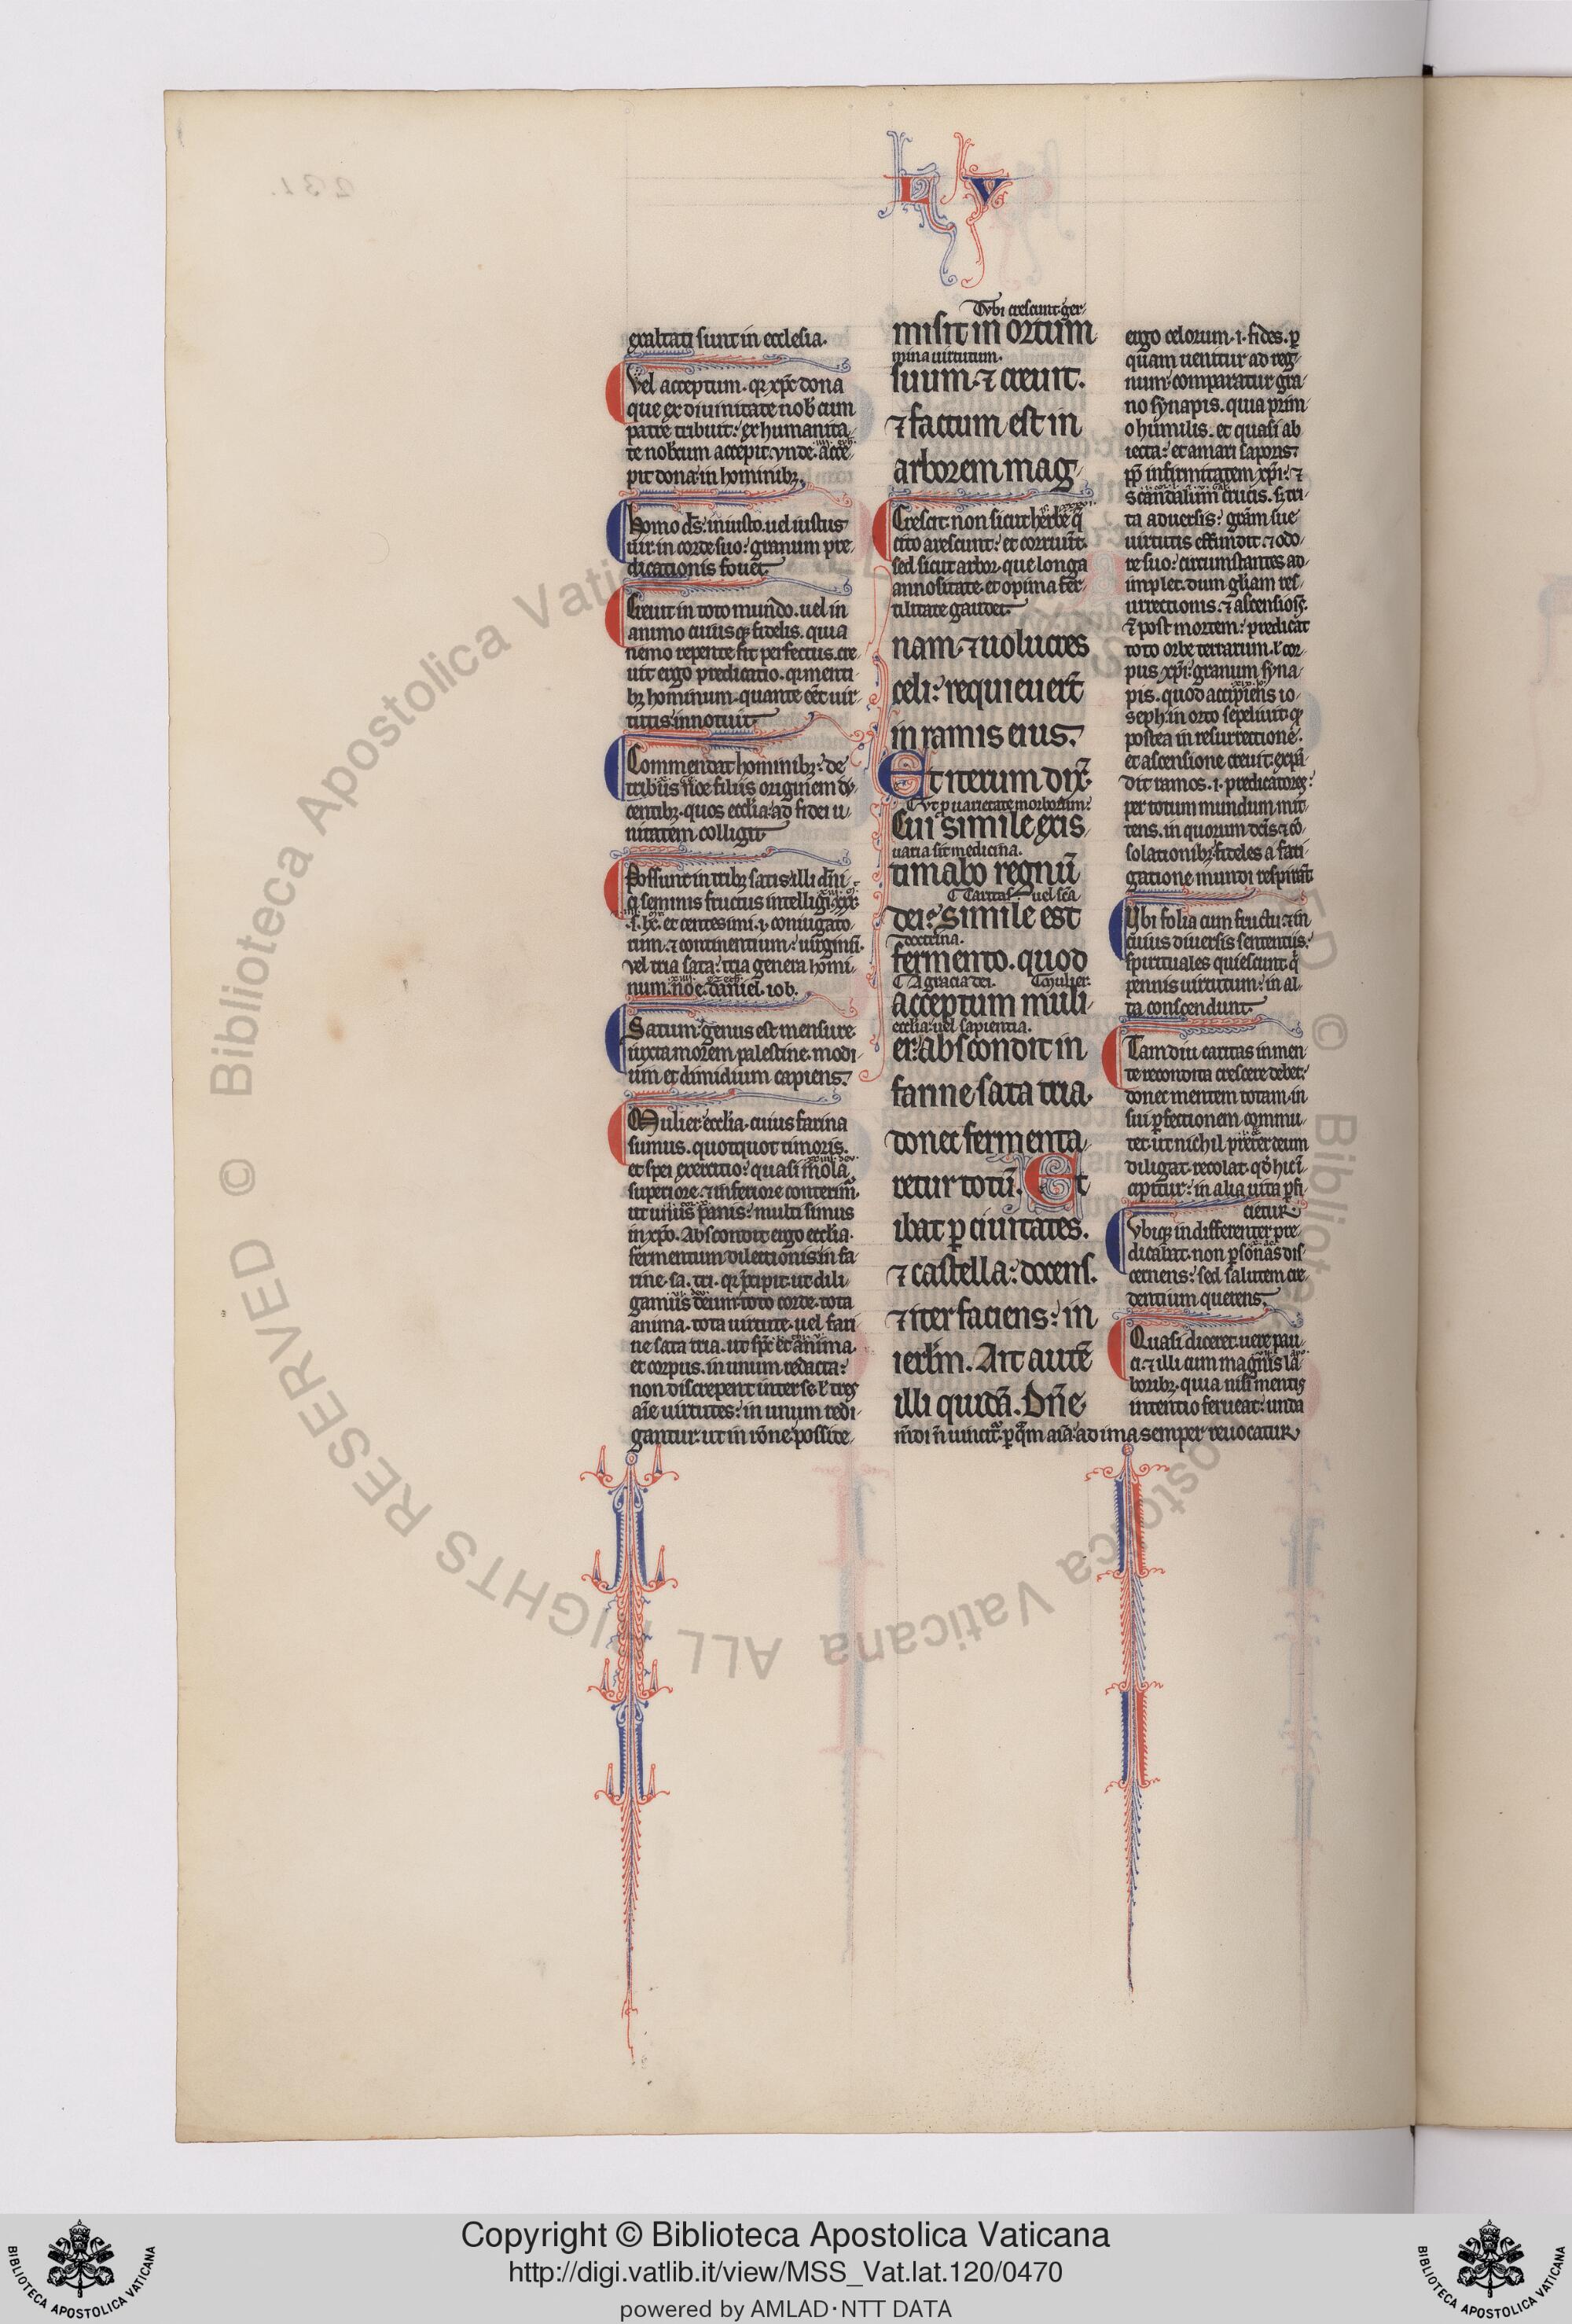 L V
exaltati sunt in ecclesia.
Vel acceptum. qr xp̄c dona
que ex diuinitate nob̄ cum
patre tribuit: ex humanita
te nob̄cum accepit. vnde. acce
pit dona in hominibꝫ.
homo d̄s. iniusto. uel iustus
uir in corde suo: granum pre
dicationis fouet.
Creuit in toto mundo. uel in
animo cuiusqꝫ fidelis. quia
nemo repente fit perfectus. cre
uit ergo predicatio. qr menti
bꝫ hominum. quante eēt uir
tutis: innotuit.
Commendat hominibꝫ: de
tribus noe filiis originem du
centibꝫ. quos ecclīa ad fidei u
nitatem colligit.
Possunt in tribꝫ satis illi dn̄i
seminis fructus intelligi. xxx.
.s. lx. et centesimi. i. coniugato
rum. ⁊ continentium: uirginū.
Vel tria sata: tria genera homi
num. noe. daniel. iob.
Satum. genus est mensure
iuxta morem palestine. modi
um et dimidium capiens.
Mulier ecclīa. cuius farina
sumus. quotquot timoris.
et spei exercitio: quasi mola
superiore. ⁊ inferiore conterim̄.
ut unius panis: multi simus
in xp̄o. Abscondit ergo ecclīa.
fermentum dilectionis in fa
rine. sa. tri. qr p̄cipit. ut dili
gamus deum. toto corde. tota
anima. tota uirtute. uel fari
ne sata tria. ut sp̄c et anima.
et corpus. in unum redacta:
non discrepent inter se. ł tres
aīe uirtutes: in unum redi
gantur. ut in rōne possite
Vbi crescunt ger
misit in ortum
mina uirtutum.
suum. ⁊ creuit.
⁊ factum est in
arborem mag
Crescit. non sicut herbe q̄
cito arescunt: et corruūt.
sed sicut arbor que longa
annositate. et opima fer
tilitate gaudet.
nam. ⁊ uolucres
celi: requieuerūt
in ramis eius.
Et iterum dix̄.
Vt p̱ uarietate morborum:
Cui simile exis
uaria sit medicina.
timabo regnū
Caritas. uel scā
dei: Simile est
doctrina.
fermento. quod
A gracia dei. Mulier.
acceptum muli
ecclīa: uel sapientia.
er: abscondit in
farine sata tria.
donec fermenta
retur totū. Et
ibat ꝑ ciuitates.
⁊ castella: docens.
⁊ iter faciens: in
ierlm̄. Ait autē
illi quidā. Dn̄e
ergo celorum. i. fides. ꝑ
quam uenitur ad reg
num: comparatur gra
no synapis. quia prim
o humilis. et quasi ab
iecta: et amari saporis:
pp̄ infirmitatem xp̄i: ⁊
scandalum crucis. s; tri
ta aduersis: grām sue
uirtutis effundit. ⁊ odo
re suo: circumstantes ad
implet. dum gl̄iam res
urrectionis. ⁊ ascensiois.
⁊ post mortem: predicat
toto orbe terrarum. ł cor
pus xp̄i: granum syna
pis. quod accipiens io
seph. in orto sepeliuit. qr
postea in resurrectione.
et ascensione creuit. expā
dit ramos. i. predicatores:
per totum mundum mit
tens. in quorum dictis. ⁊ cō
solationibꝫ: fideles a fati
gatione mundi respirāt.
Vbi folia cum fructu: ⁊ in
cuius diuersis sententiis:
spirituales quiescunt. q̄
pennis uirtutum: in al
ta conscendunt.
Tamdiu caritas in men
te recondita crescere debet:
donec mentem totam in
sui ꝑfectionem commu
tet. ut nichil preter deum
diligat. recolat. qd̄ hic i
cipitur: in alia uita ꝑfi
cietur.
Vbiqꝫ indifferenter pre
dicabat. non ꝑsonas dis
cernens: sed salutem cre
dentium querens.
Quasi diceret. uere pau
ci. ⁊ illi cum magnis la
boribꝫ. quia nisi mentis
intentio ferueat: unda
m̄di n̄ uincit̄. ꝑ q̄m aīa: ad ima semper reuocatur
231.
© Biblioteca Apostolica Vaticana ALL RIGHTS RESERVED
© Biblioteca Apostolica Vaticana
Copyright © Biblioteca Apostolica Vaticana
http://digi.vatlib.it/view/MSS_Vat.lat.120/0470
powered by AMLAD·NTT DATA
BIBLIOTECA APOSTOLICA VATICANA
BIBLIOTECA APOSTOLICA VATICANA